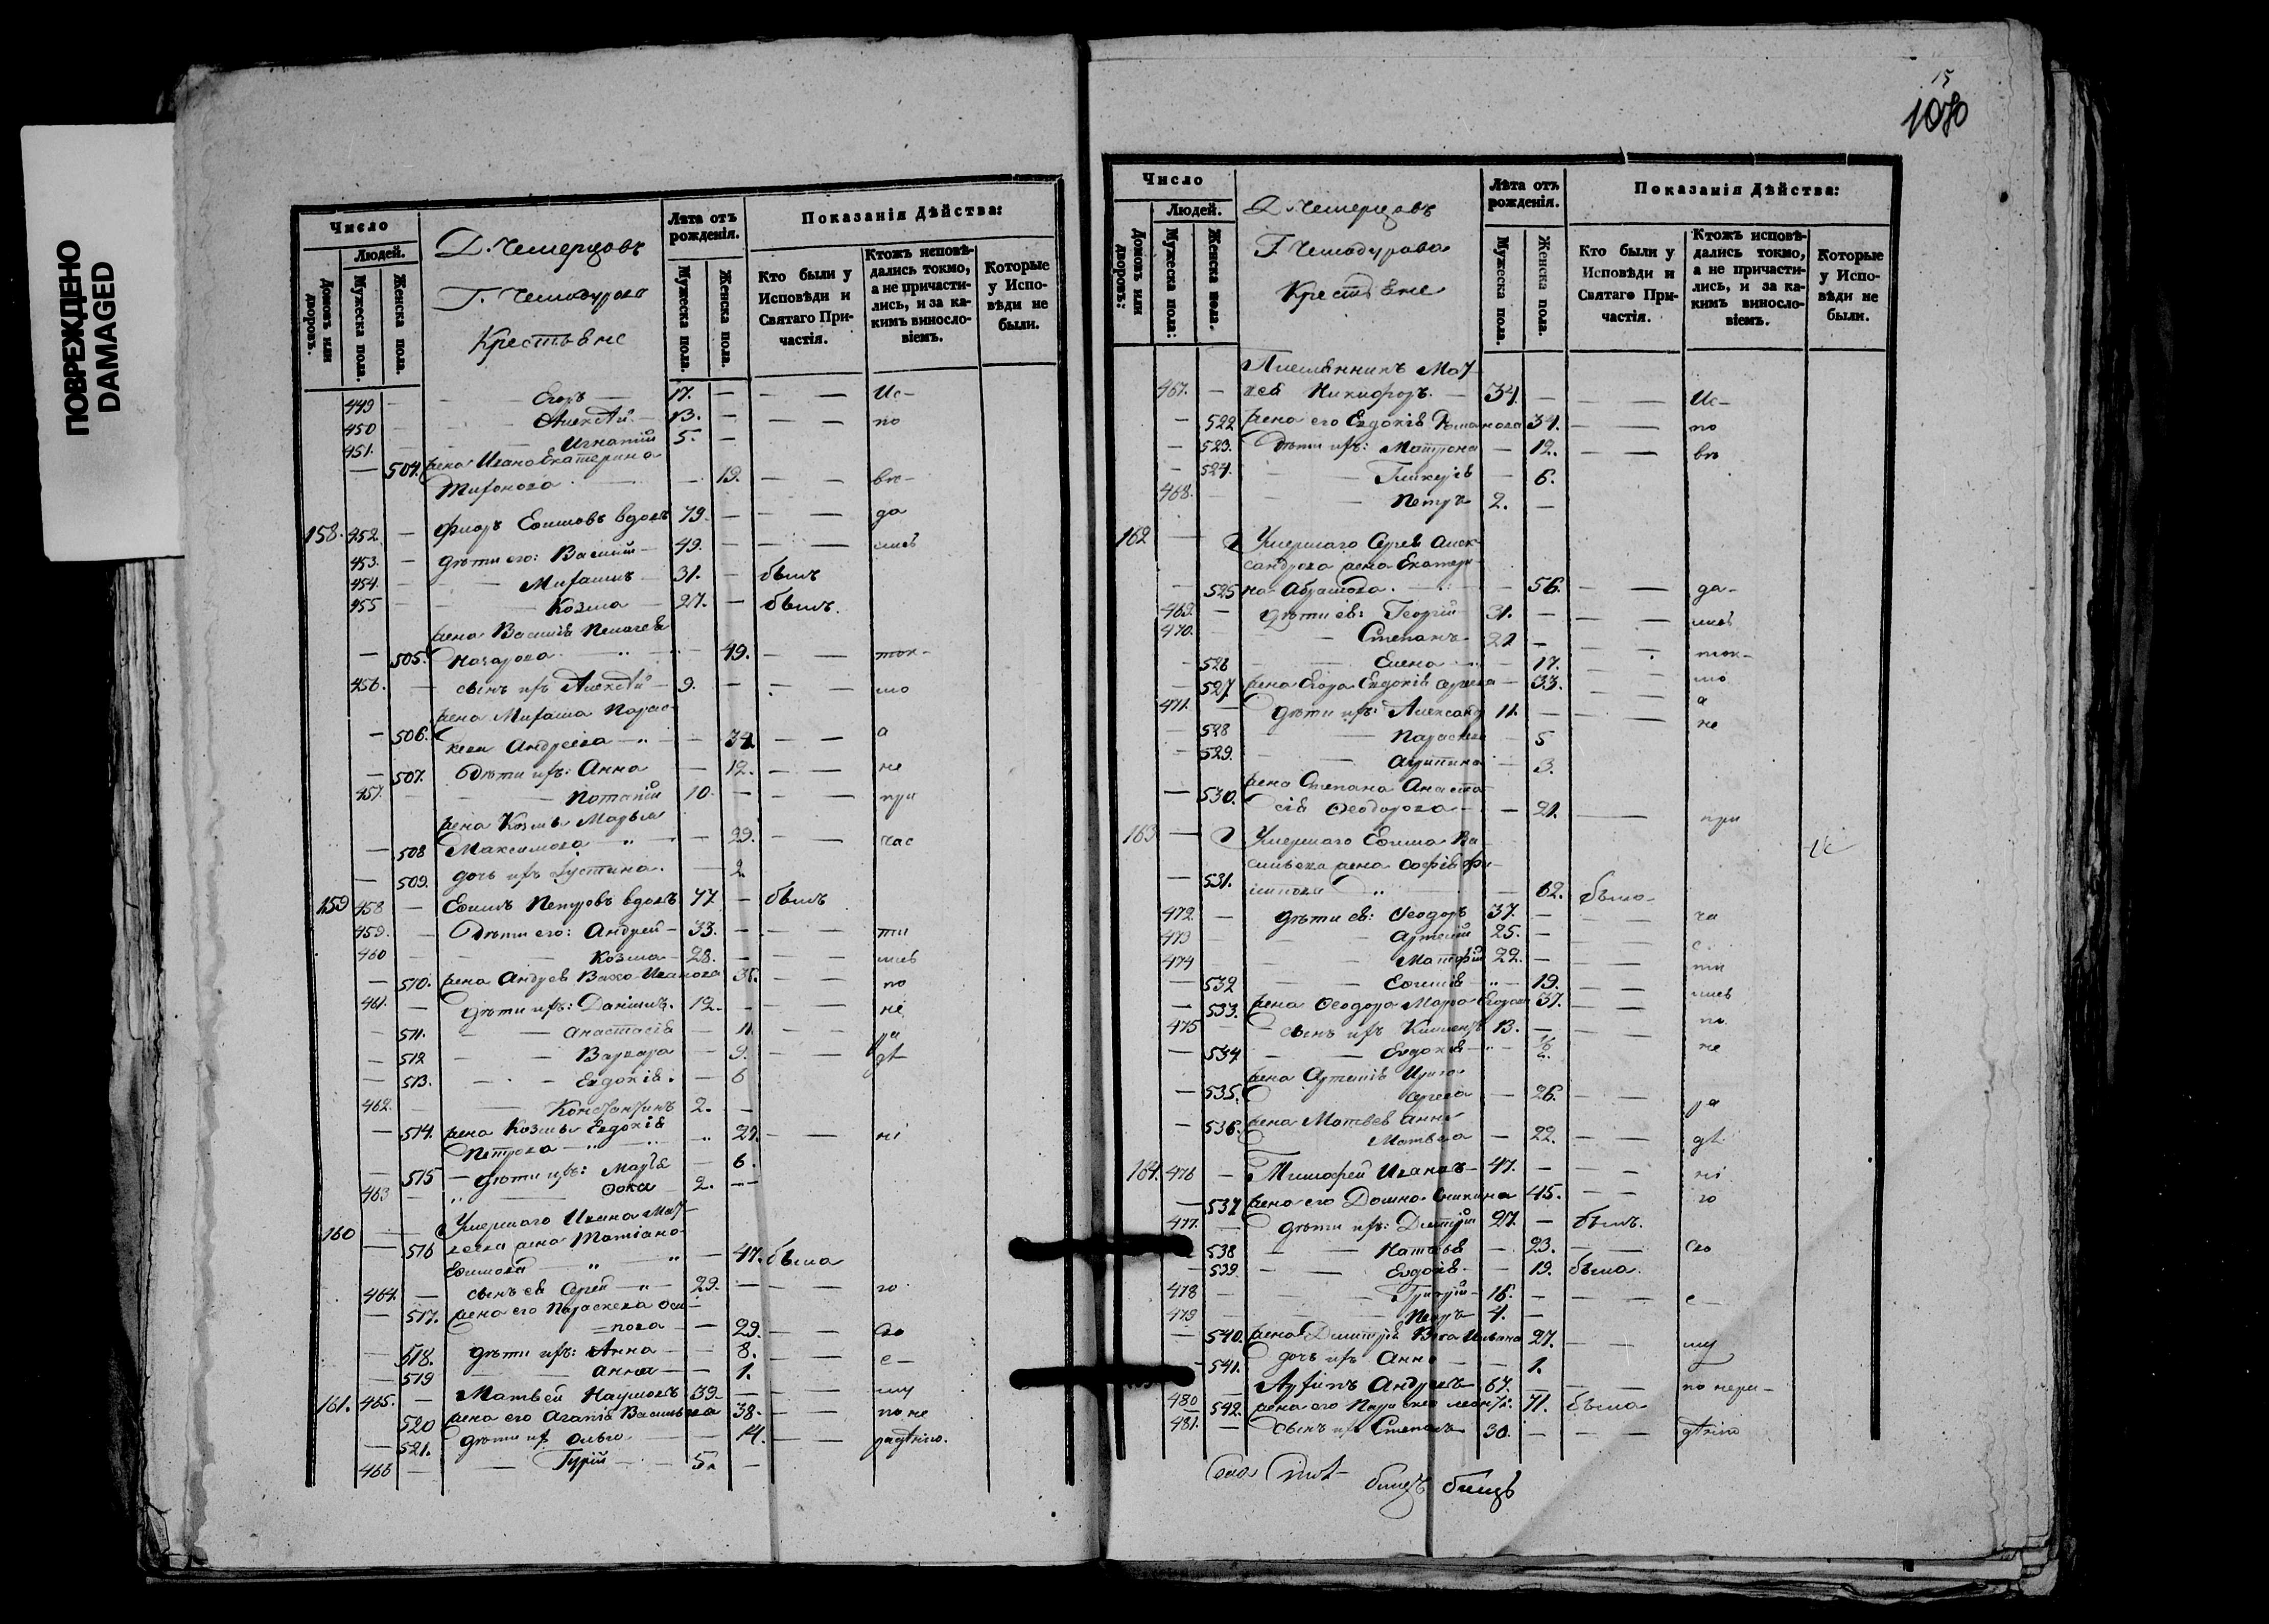 ПОВРЕЖДЕНО
DAMAGED
Число
Людей.
Домовъ или дворовъ.
Мужеска пола.
Женска пола.
Д. Чемерцовъ
Г. Чемодурова
Крестьяне
Лѣта отъ рожденія.
Мужеска пола.
Женска пола.
Показанія Дѣйства:
Кто были у Исповѣди и Святаго Причастія.
Ктожъ исповѣдались токмо, а не причастились, и за какимъ винословіемъ.
Которые у Исповѣди не были.
449 — Егоръ — 17. — Ис-
450 — Алексѣй — 13. — по
451. — Игнатій 5. —
504. жена Ивана Екатерина
19. — вѣ-
158. 452. — Ефимовъ вдовъ 79. — да
453. — дѣти его: Василій — 49. — лись
454. — 31. — былъ
455 — Козма — 27. — былъ.
жена Василія Пелагея
505. Назарова — 49. — ток-
456. — сынъ ихъ Алексѣй — 9. — мо
жена Парас-
506. кева Андреева — 34. — а
507. Дѣти ихъ: Анна — 12. — не
457. — Потапій 10. — при
жена Козмы Марья
508 Максимова — 29. — час
509. дочь ихъ Іустина. — 2
159 458 — Ефимъ Петровъ вдовъ 77 — былъ
459. — Дѣти его: Андрей — 33. — ти
460 — Козма — 28. — лись
510. жена Андрея Иванова 35. — по
461. — дѣти ихъ: Даніилъ. 12. — не
511. — Анастасія — 11. — ра
512 — Варвара — 9. — дѣ
513. — Евдокія. — 6
462. — Константинъ 2. —
514. жена Козмы Евдокія
Петрова — 29. — ні
515 — дѣти ихъ: Марія — 6.
463 — Фока — 2. —
160 — Умершаго Ивана Мат-
516 веева жена Татіана
Ефимова — 47. была
464. — сынъ ея Сергѣй — 29. — ю
517. жена его Параскева Оси-
пова — 29. — Сво
518. дѣти ихъ: Анна — 8. — е-
519 — Анна — 1.
161. 465. — Матвей Наумовъ 39 — му
520 жена его Агапія Васильева 38. — по не
521. дѣти их. Ольга — 14. — радѣнію.
466 — Гурій — 5. —
15
1080
Число
Людей.
Домовъ или дворовъ:
Мужеска пола:
Женска пола.
Д. Чемерцовъ
Г. Чемодурова
Крестьяне
Лѣта отъ рожденія.
Мужеска пола.
Женска пола.
Показанія Дѣйства:
Кто были у Исповѣди и Святаго Причастія.
Ктожъ исповѣдались токмо, а не причастились, и за какимъ винословіемъ.
Которые у Исповѣди не были.
Племянникъ Мат-
467. — вея Никифоръ. — 34. — Ис-
522 жена его Евдокія Романова 34. — по
523. Дѣти ихъ: Матрона — 12. — вѣ
524. — Гликерія — 6.
468. — Петръ 2. —
162 — Умершаго Сергѣя Алек-
сандрова жена Екатери-
525 на Абрамова. — 56. — да-
469. — дѣти ея: Георгій 31. — лись
470. — Степанъ — 22 — ток-
526 — Елена — 17. — мо
527 жена Егора Евдокія Сергеева — 33. — а
471. — дѣти ихъ: Александръ 11. — не
528 — Параскева — 5
529. — Агрипина — 3.
530. жена Степана Анаста-
сія Феодорова — 21. — при
163 — Умершаго Ефима Ва-
сильева жена Софія Фи-
531. липпова — 62. была
472 — дѣти ея: Феодоръ 37. — ча
473 — Артемій 25. — с
474 — Матфій 22. — ти
532 — Евгенія — 19. — лись
533. жена Феодора Марфа Егорова 37. — по
475 — сынъ ихъ 13. — не
534 — Евдокія —
535. жена Артемія
Сергеева — 26. — ра
536. жена Матвея Анна
Матвева — 22. — дѣ-
164. 476 — Тимофей Ивановъ — 47. — ні
537 жена его Домна 45. — ю
477. — дѣти ихъ: Дмитрій 27. — былъ.
538 — Наталья — 23. — Сво
539. — Евдокія — 19. была.
478 — Григорій — 16. — е
479 — Петръ — 4. —
540. жена Дмитрія 27. — му
541. дочь ихъ Анна — 1.
480 Архипъ Андреевъ 67. — по нера-
542. жена его Параскева 71. была
481. — Сынъ ихъ Степанъ 30. — дѣнію